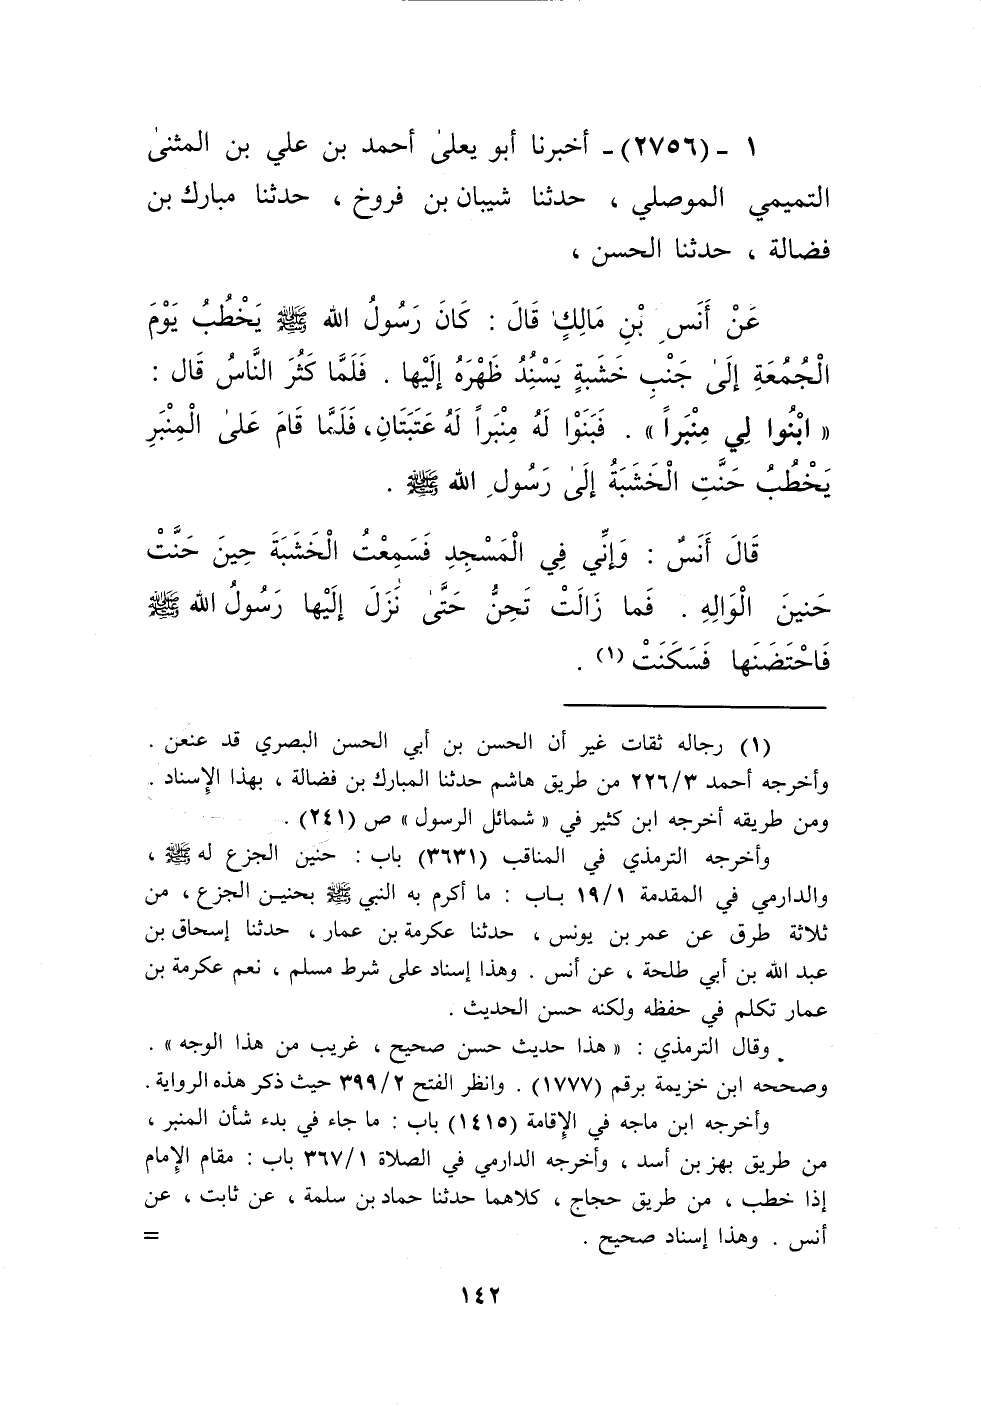 ١ ـ (٢٧٥٦)ـ أخبرنا أبو يعلىٰ أحمد بن علي بن المثنىٰ
التميمي الموصلي ، حدثنا شيبان بن فروخ ، حدثنا مبارك بن
فضالة ، حدثنا الحسن ،
عَنْ أَنَسِ بْنِ مَالِكٍ قَالَ : كَانَ رَسُولُ الله ﷺ يَخْطُبُ يَوْمَ
الْجُمُعَةِ إِلَىٰ جَنْبِ خَشَبَةٍ يَسْنُدُ ظَهْرَهُ إِلَيْها . فَلَمَّا كَثُرَ النَّاسُ قَال :
« ابْنُوا لِي مِنْبَراً » . فَبَنَوْا لَهُ مِنْبَراً لَهُ عَتَبَتَانِ، فَلَمَّا قَامَ عَلىٰ الْمِنْبَرِ
يَخْطُبُ حَنَّتِ الْخَشَبَةُ إِلَىٰ رَسُولِ الله ﷺ .
قَالَ أَنَسٌ : وَإِنِّي فِي الْمَسْجِدِ فَسَمِعْتُ الْخَشَبَةَ حِينَ حَنَّتْ
حَنينَ الْوَالِهِ . فَما زَالَتْ تَحِنُّ حَتَّىٰ نَزَلَ إِلَيْها رَسُولُ الله ﷺ
فَاحْتَضَنَها فَسَكَنَتْ (١) .
(١) رجاله ثقات غير أن الحسن بن أبي الحسن البصري قد عنعن .
وأخرجه أحمد ٢٢٦/٣ من طريق هاشم حدثنا المبارك بن فضالة ، بهذا الإسناد .
ومن طريقه أخرجه ابن كثير في « شمائل الرسول » ص (٢٤١) .
وأخرجه الترمذي في المناقب (٣٦٣١) باب : حنين الجزع له ﷺ ،
والدارمي في المقدمة ١٩/١ بـاب : ما أكرم به النبي ﷺ بحنيـن الجزع ، من
ثلاثة طرق عن عمر بن يونس ، حدثنا عكرمة بن عمار ، حدثنا إسحاق بن
عبد الله بن أبي طلحة ، عن أنس . وهذا إسناد على شرط مسلم ، نعم عكرمة بن
عمار تكلم في حفظه ولكنه حسن الحديث .
وقال الترمذي : « هذا حديث حسن صحيح ، غريب من هذا الوجه » .
وصححه ابن خزيمة برقم (١٧٧٧) . وانظر الفتح ٣٩٩/٢ حيث ذكر هذه الرواية .
وأخرجه ابن ماجه في الإقامة (١٤١٥) باب : ما جاء في بدء شأن المنبر ،
من طريق بهز بن أسد ، وأخرجه الدارمي في الصلاة ٣٦٧/١ باب : مقام الإمام
إذا خطب ، من طريق حجاج ، كلاهما حدثنا حماد بن سلمة ، عن ثابت ، عن
أنس . وهذا إسناد صحيح . =
١٤٢